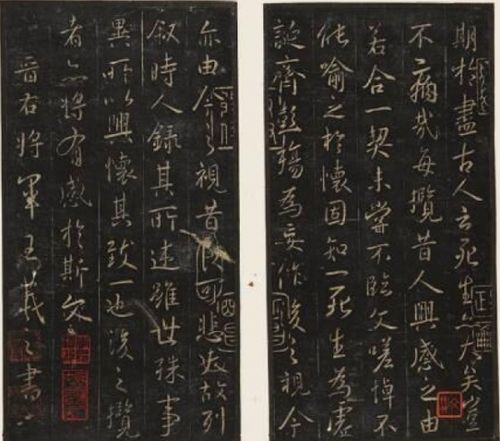 期於盡古人云死生亦大矣豈
不痛哉每攬昔人興感之由
若合一契未嘗不臨文嗟悼不
能喻之於懷固知一死生為虛
誕齊彭殤為妄作後之視今
亦由今之視昔可悲夫故列
叙時人錄其所述雖世殊事
異所以興懷其致一也後之攬
者亦將有感於斯文
晉右將軍王羲之書